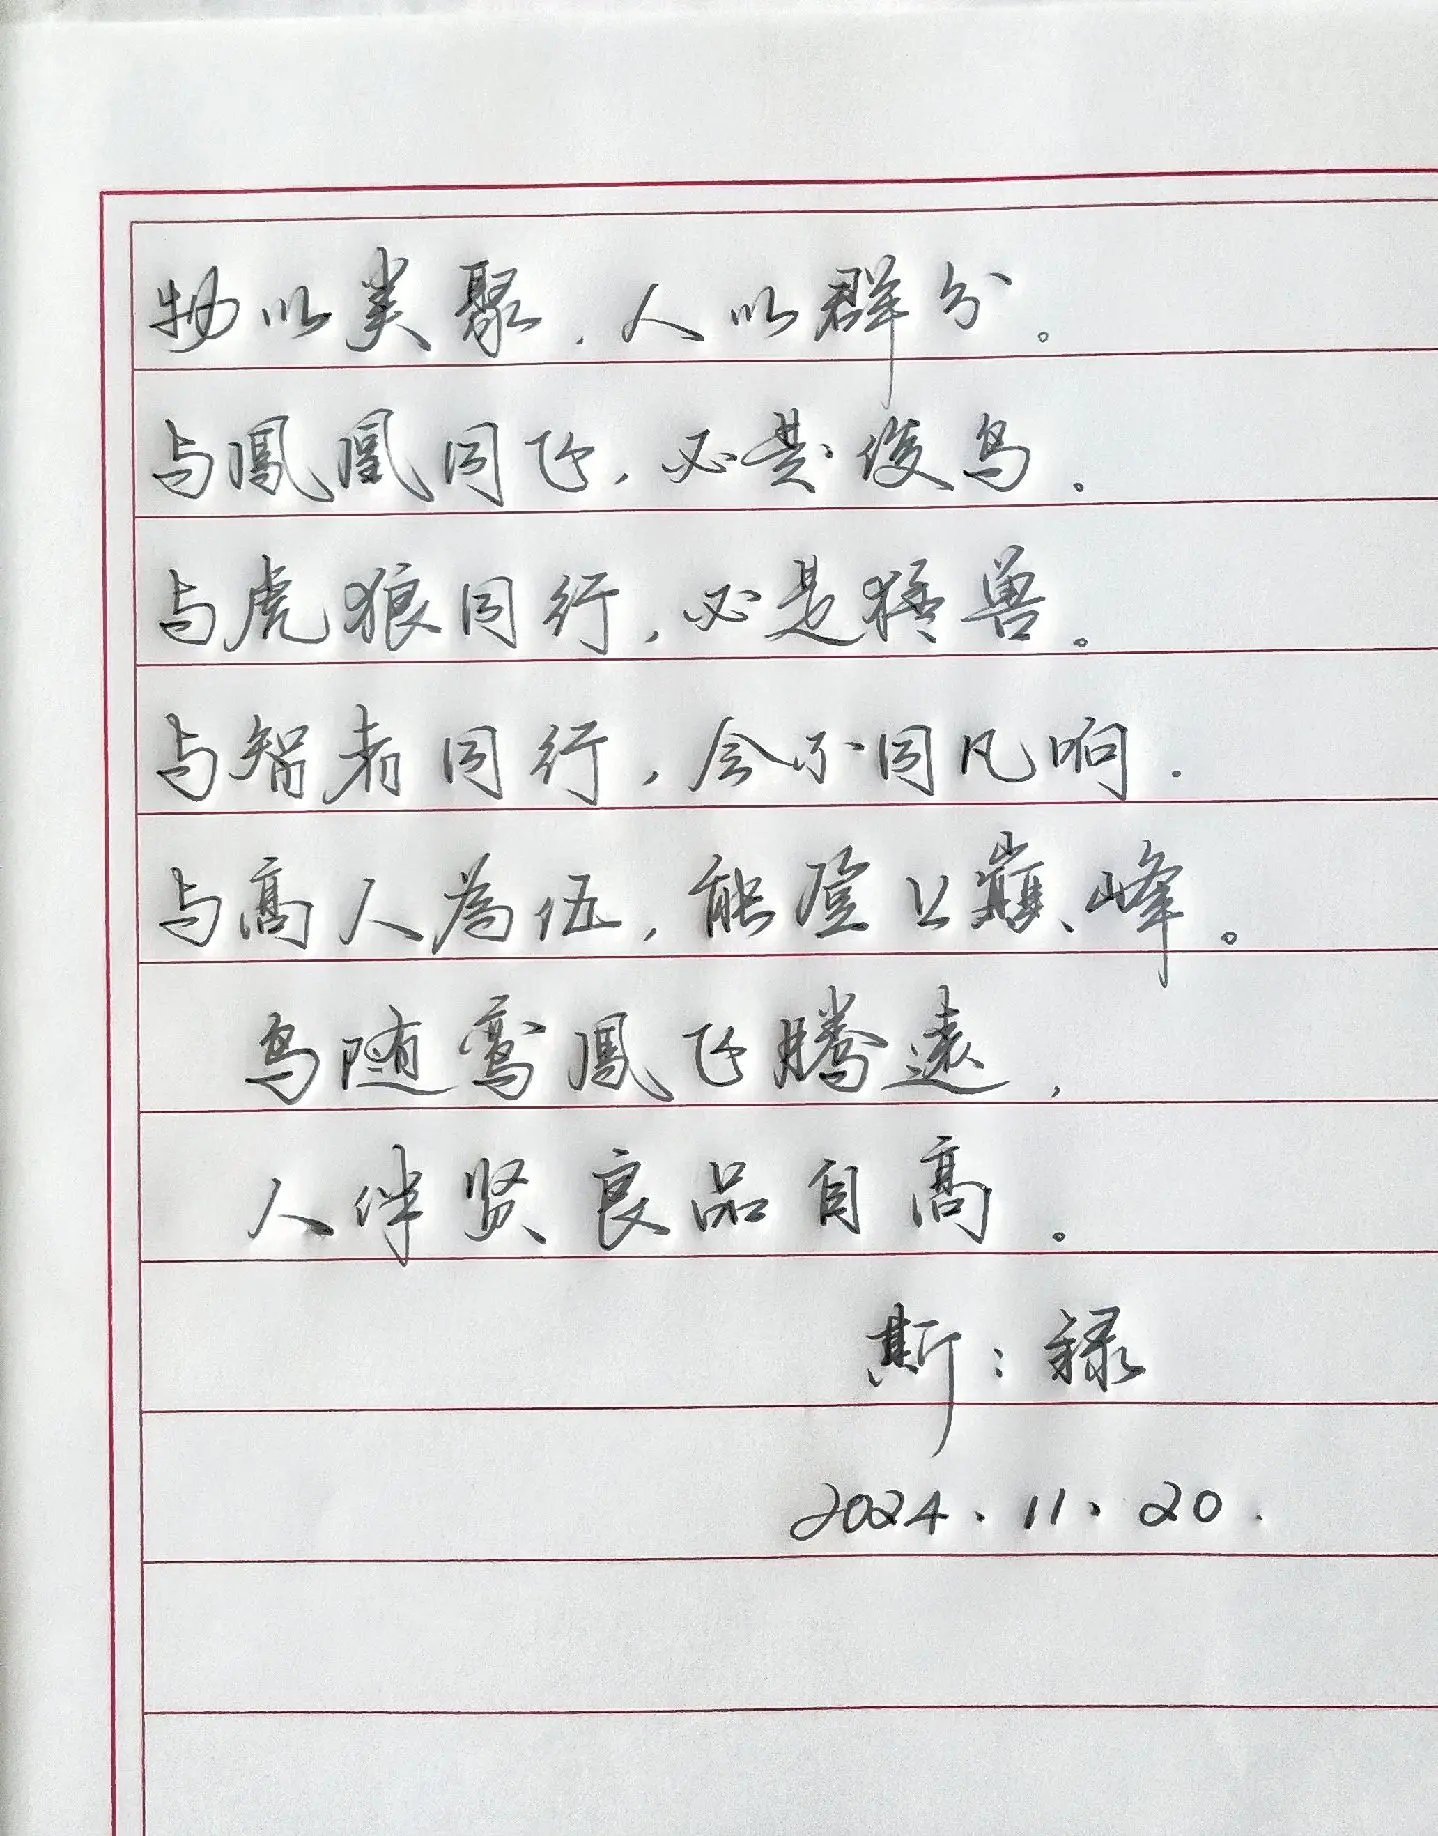 物以类聚,人以群分。
与鳳凰同飞,必是俊鸟.
与虎狼同行,必是猛兽。
与智者同行,会不同凡响.
与高人為伍,能登上巅峰。
鸟随鸾鳳飞腾遠,
人伴贤良品自高。
斯:禄
2024.11.20.